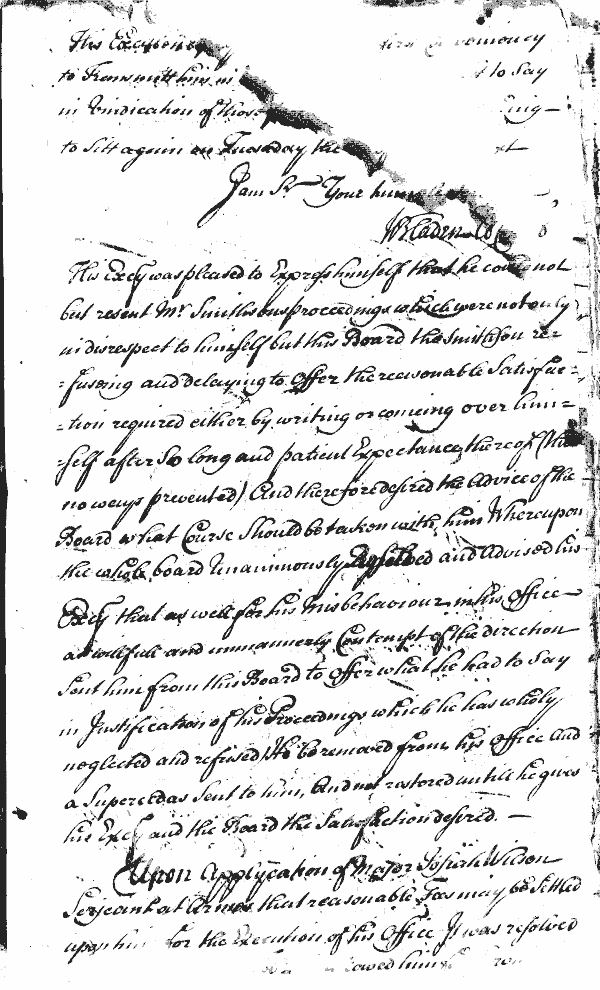 His Excy
to Transmitt him in to say
in Vindication of those
to sitt again on Tuesday the
I am Sr Your humble
WBladen Co
His Excy was pleased to Express himself that he could not
but resent Mr Smiths proceedings which were not only
in disrespect to himself but this Board the Smithson re=
=fusing and delaying to Offer the reasonable Satisfac=
=tion required either by writing or comeing over him=
=self after So long and patient Expectance thereof
no ways prevented) And therefore desired the Advice of the
Board what Course Should be taken with him Whereupon
the whole board Unanimously Resolved and Advised his
Excy that as well for his Misbehaviour in his Office
as willfull and unmannerly Contempt of the direction
Sent him from this Board to Offer what he had to Say
in Justification of his Proceedings which he has wholy
neglected and refused He be removed from his Office And
a Supercedas Sent to him, And not restored untill he gives
his Excy and the Board the Satisfaction desired. —
Upon Applycation of Major Josiah Wilson
Serjeant at Armes that reasonable Fees may be Settled
upon him for the Execution of his Office It was resolved